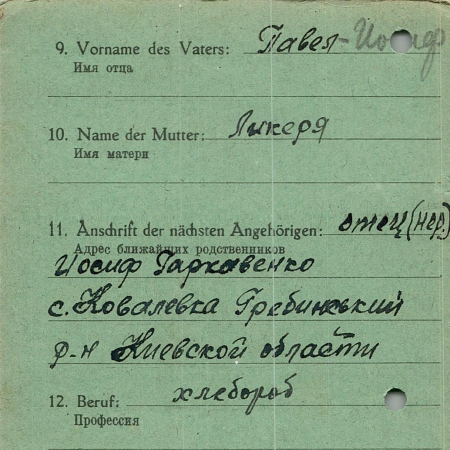 9. Vorname des Vaters: Павел-Иосиф
Имя отца
10. Name der Mutter: Ликеря
Имя матери
11. Anschrift der nächsten Angehörigen: отец (нер.)
Адрес ближайших родственников
Иосиф Гаркавенко
с. Ковалевка Гребинський
р-н Киевской области
12. Beruf: хлебороб
Профессия